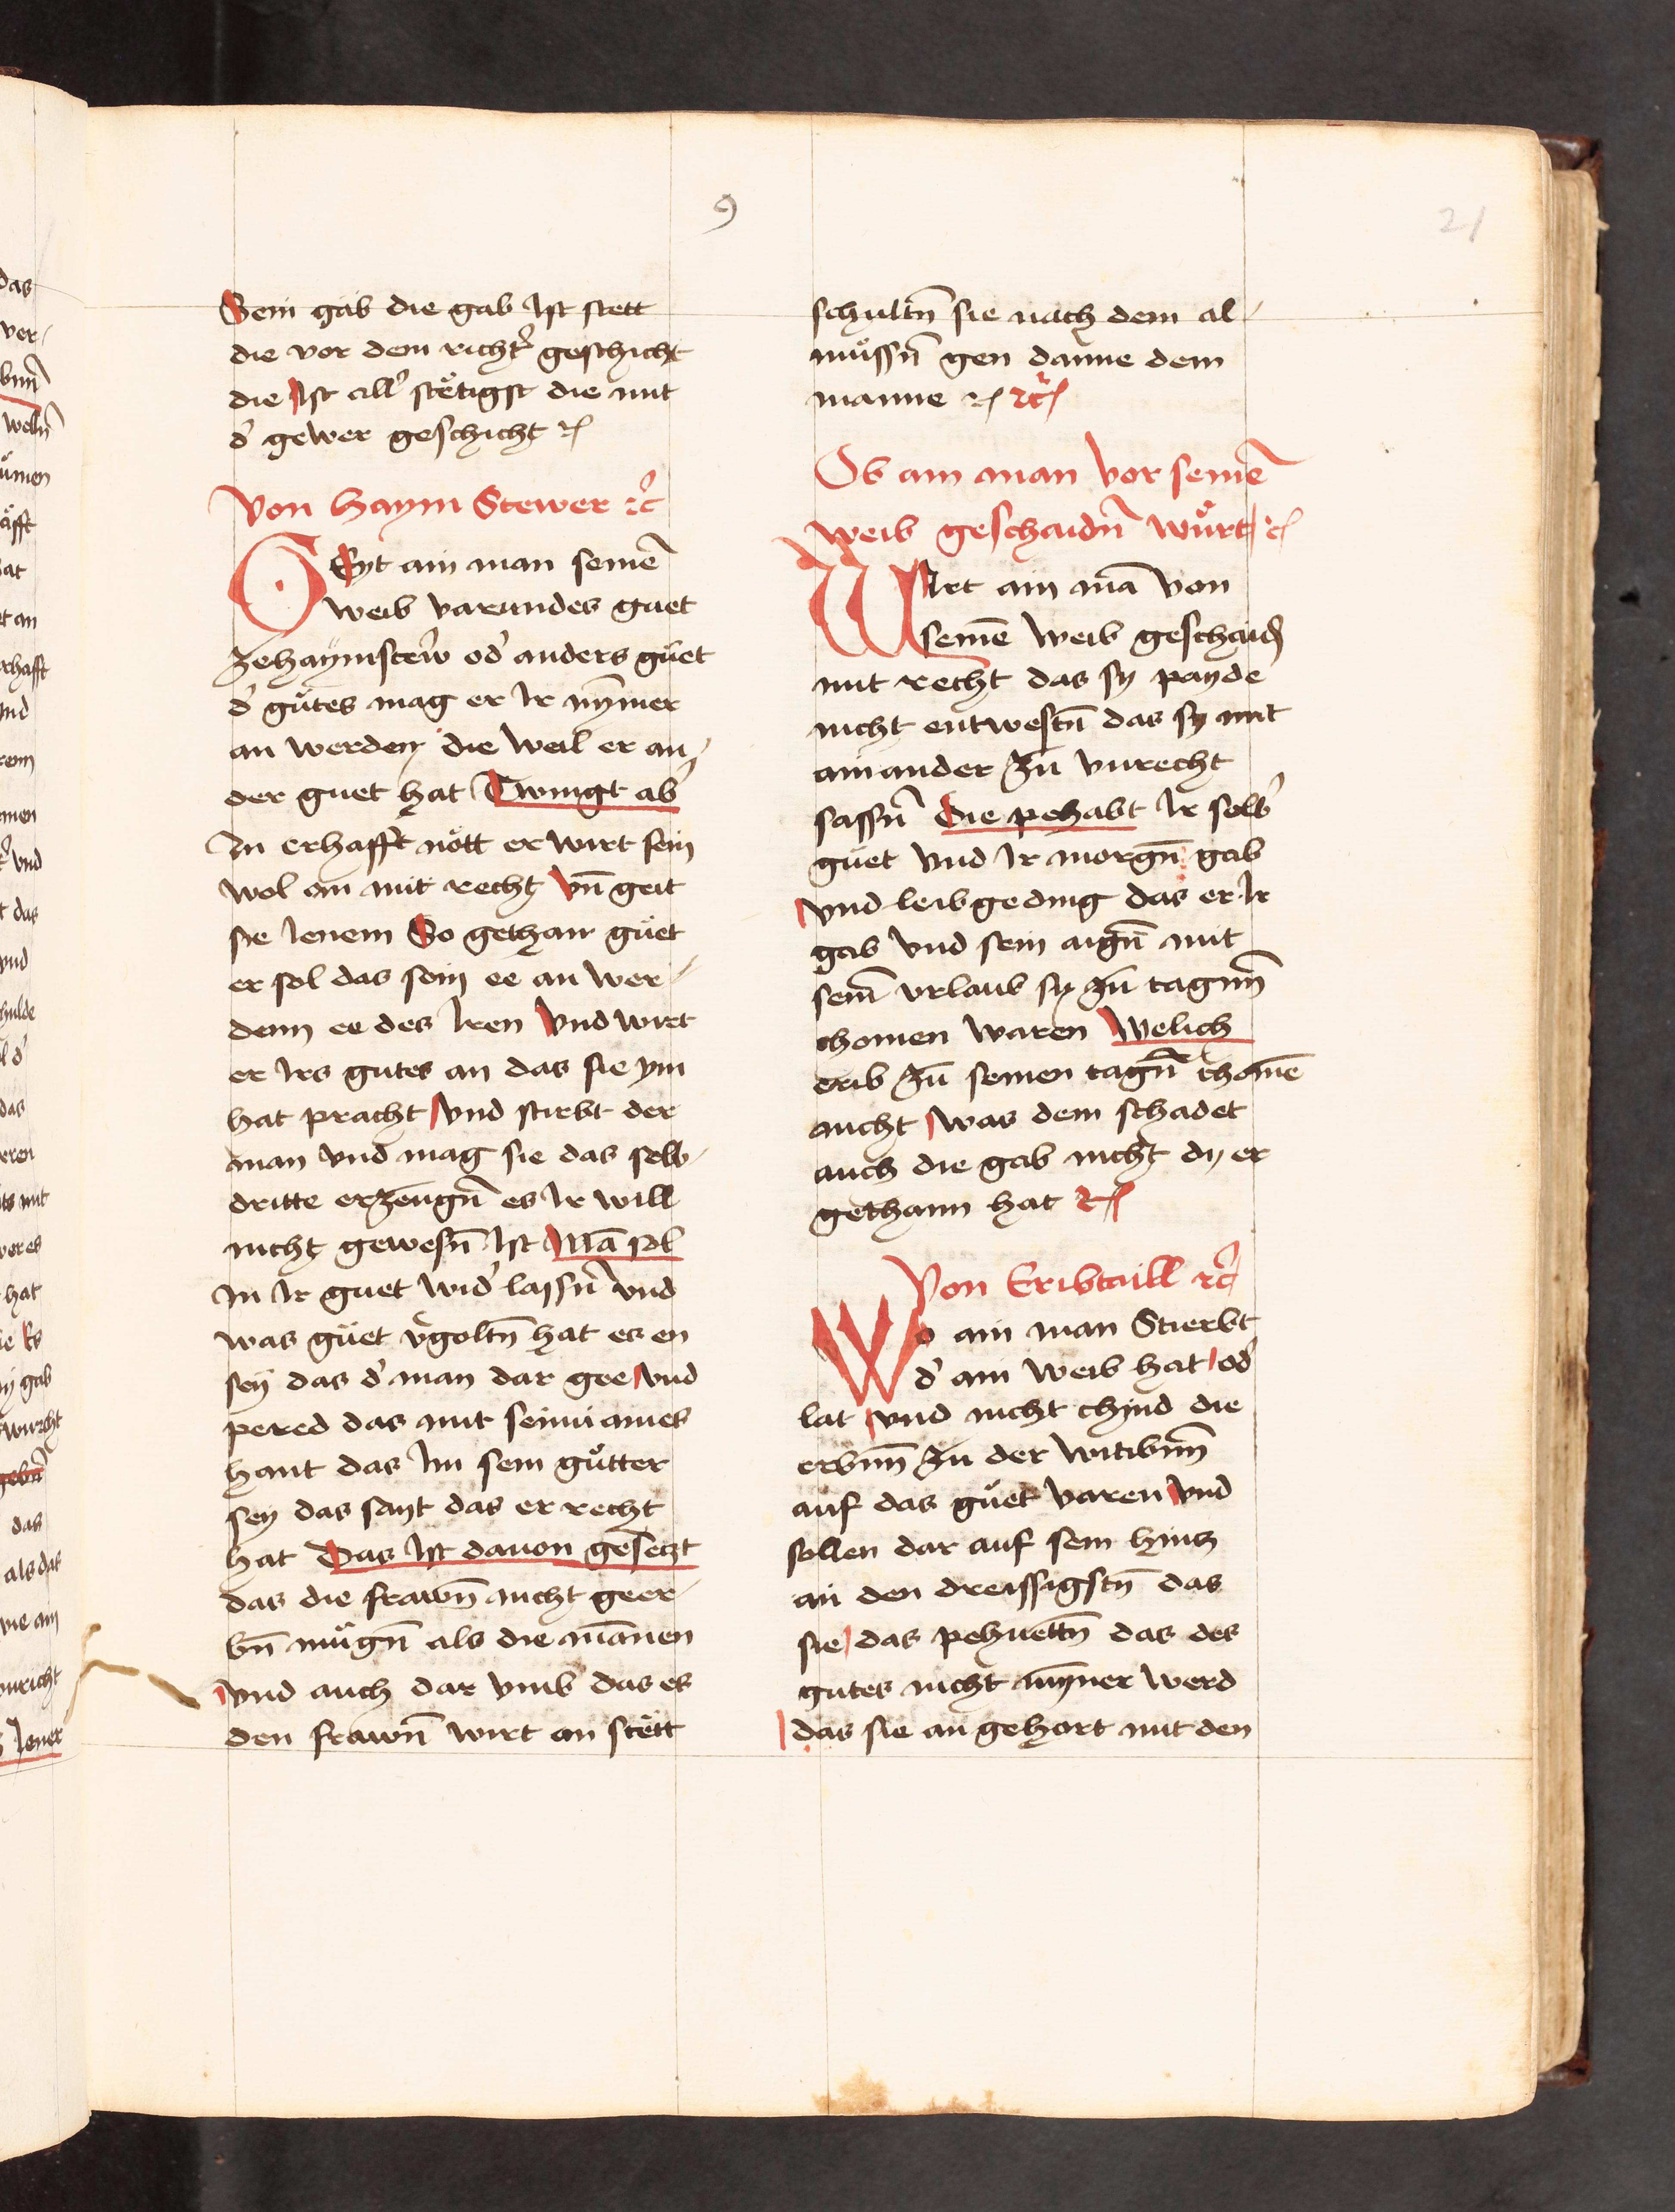 9
21
Sein gab die gab Ist stett
die vor dem richt̉ geschicht
die Ist all̉ stëtigst die mit
d̉ gewer geschicht ꝛc
Von haym Stewer ꝛc̉
Gyt ain man seinē
weib varundes guet
zehaymstew̉ od̉ anders gůet
d̉ gůtes mag er Ir nȳmer
an werden die weil er an /
der guet hat Twingt ab̉
In erhafft nött er wirt sein
wol on mit recht vn̄ geit
sie Ienem So gethan gůet
er sol das sein ee an wer /
denn ee des Iren Vnd wirt
er Irs gutes an das sie ym
hat pracht Vnd stirbt der
man vnd mag sie das selb /
dritte erzeugn̄ es Ir will
nicht gewesn̄ Ist Mā sol
In Ir guet wid̉ lassn̄ vnd
was gůet v̉goltn̄ hat es en
seÿ das d̉ man dar gee vnd
pered das mit seinn aines
hant das Im sein gůtter
seÿ das sayt das er recht
hat Das Ist dauon gesetzt
das die frawn̄ nicht geer /
bn̄ můgn̄ als die mānen
vnd auch dar vmb das es
den frawn̄ wirt an stëtt
schultn̄ sie nach dem al /
můssn̄ gen danne dem
manne ꝛc ꝛc̉
Ob ain man vor seinē
weib geschaidn̄ wůrt ꝛc
Wirt ain mā von
seinē weib geschaid
mit recht das sy payde
nicht entwestn̄ das sy mit
ainander zu vnrecht
sassn̄ Die pehabt Ir selb̉
gůet vnd Ir morgn̄ gab
vnd leibgeding das er Ir
gab vnd sein aign̄ mit
seim̄ vrlaub sy zu tagnn̄
chomen waren Welich
erib zu seinen tagn̄ chomē
nicht was dem schadet
auch die gab nicht dy er
gethann hat ꝛc
Von Eribtaill ꝛc̉
Wo ain man Stierbt
d̉ ain weib hat od̉
lat vnd nicht chind die
erbnn̄ zu der witibnn̄
auf das gůet varen vnd
sollen dar auf sein hintz
an den dreissigstn̄ das
sie das pehuettn̄ das des
gutes nicht mȳner werd
das sie an gehort mit den